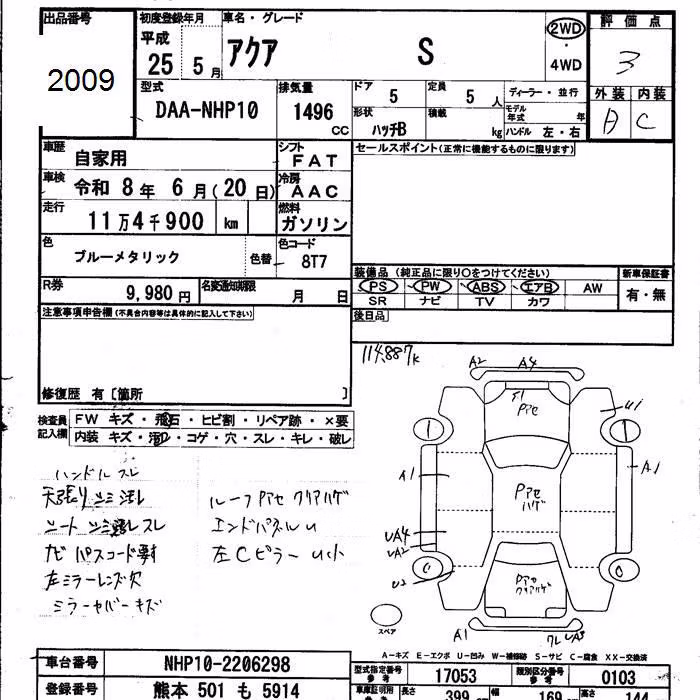 出品番号
2009
初度登録年月
平成 25 5月
車名・グレード
アクア S
2WD
・
4WD
評価点
3
外装 内装
A C
型式
DAA-NHP10
排気量
1496 CC
ドア
5
定員
5 人
形状
ハッチB
積載
kg
ディーラー・並行
モデル年式 年
ハンドル 左・右
車歴
自家用
シフト
FAT
車検
令和 8年 6月(20日)
冷房
AAC
走行
11万4千900 km
燃料
ガソリン
色
ブルーメタリック
色替
色コード
8T7
R券
9,980円
名変通知期限
月 日
セールスポイント(正常に機能するものに限ります)
装備品(純正品に限り○をつけてください)
新車保証書
PS PW ABS エアB AW
有・無
SR ナビ TV カワ
後日品
注意事項申告欄(不具合内容等は具体的に記入して下さい)
修復歴 有〔箇所 〕
検査員記入欄
FW キズ・飛石・ヒビ割・リペア跡・×要
内装 キズ・汚レ・コゲ・穴・スレ・キレ・破レ
114,887k
ハンドルスレ
天張リシミ汚レ
シートシミ汚レスレ
ナビパスコード要
左ミラーレンズ欠
ミラーカバーキズ
ルーフPアセクリアハゲ
エンドパネルU
左CピラーU小
A2 A4
S1
Pアセ
U1
A1 A1
Pアセ
ハゲ
UA4
UA2
U2
Pアセ
クリアハゲ
スペア
A1
ワレUA3
A-キズ E-エクボ U-凹み W-補修跡 S-サビ C-腐食 XX-交換済
車台番号
NHP10-2206298
型式指定番号
参考
17053
類別区分番号
参考
0103
登録番号
熊本 501 も 5914
車庫証明用
参考
長さ
399
幅
169
高さ
144